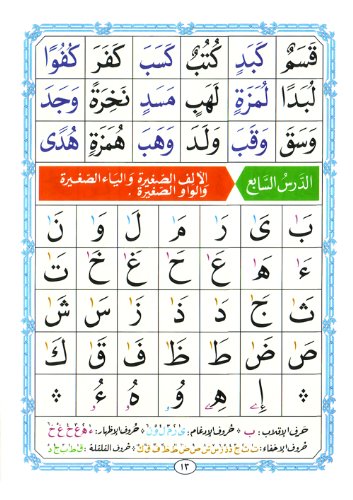 قَسَمٌ كَبَدٍ كُتُبٌ كَسَبَ كَفَرَ كُفُوًا
لُبَدًا لُمَزَةٍ لَهَبٍ مَسَدٍ نَخِرَةً وَجَدَ
وَسَقَ وَقَبَ وَلَدَ وَهَبَ هُمَزَةٍ هُدًى
الدَّرْسُ السَّابِع
الألف الصَّغِيرة وَالياء الصَّغِيرة
وَالواو الصَّغِيرة .
بٰ یٰ رٰ مٰ لٰ وٰ نٰ
ءٰ هٰ عٰ حٰ غٰ خٰ تٰ
ثٰ جٰ دٰ ذٰ زٰ سٰ شٰ
صٰ ضٰ طٰ ظٰ فٰ قٰ كٰ
إٖ هٖ وٗ هٗ ءٗ
حَرفُ الإقلاب: ب حُروفُ الإدغام: ی ر م ل و ن حُروفُ الإظهار: ء ه ع ح غ خ
حُروفُ الإخفاء: ت ث ج د ذ ز س ش ص ض ط ظ ف ق ك حُروفُ القلقلة: ق ط ب ج د
١٣